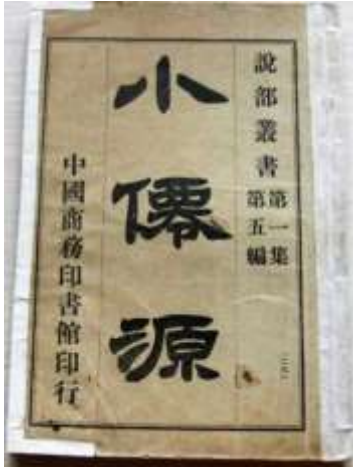 說部叢書第一集
第五編
小僊源
中國商務印書館印行